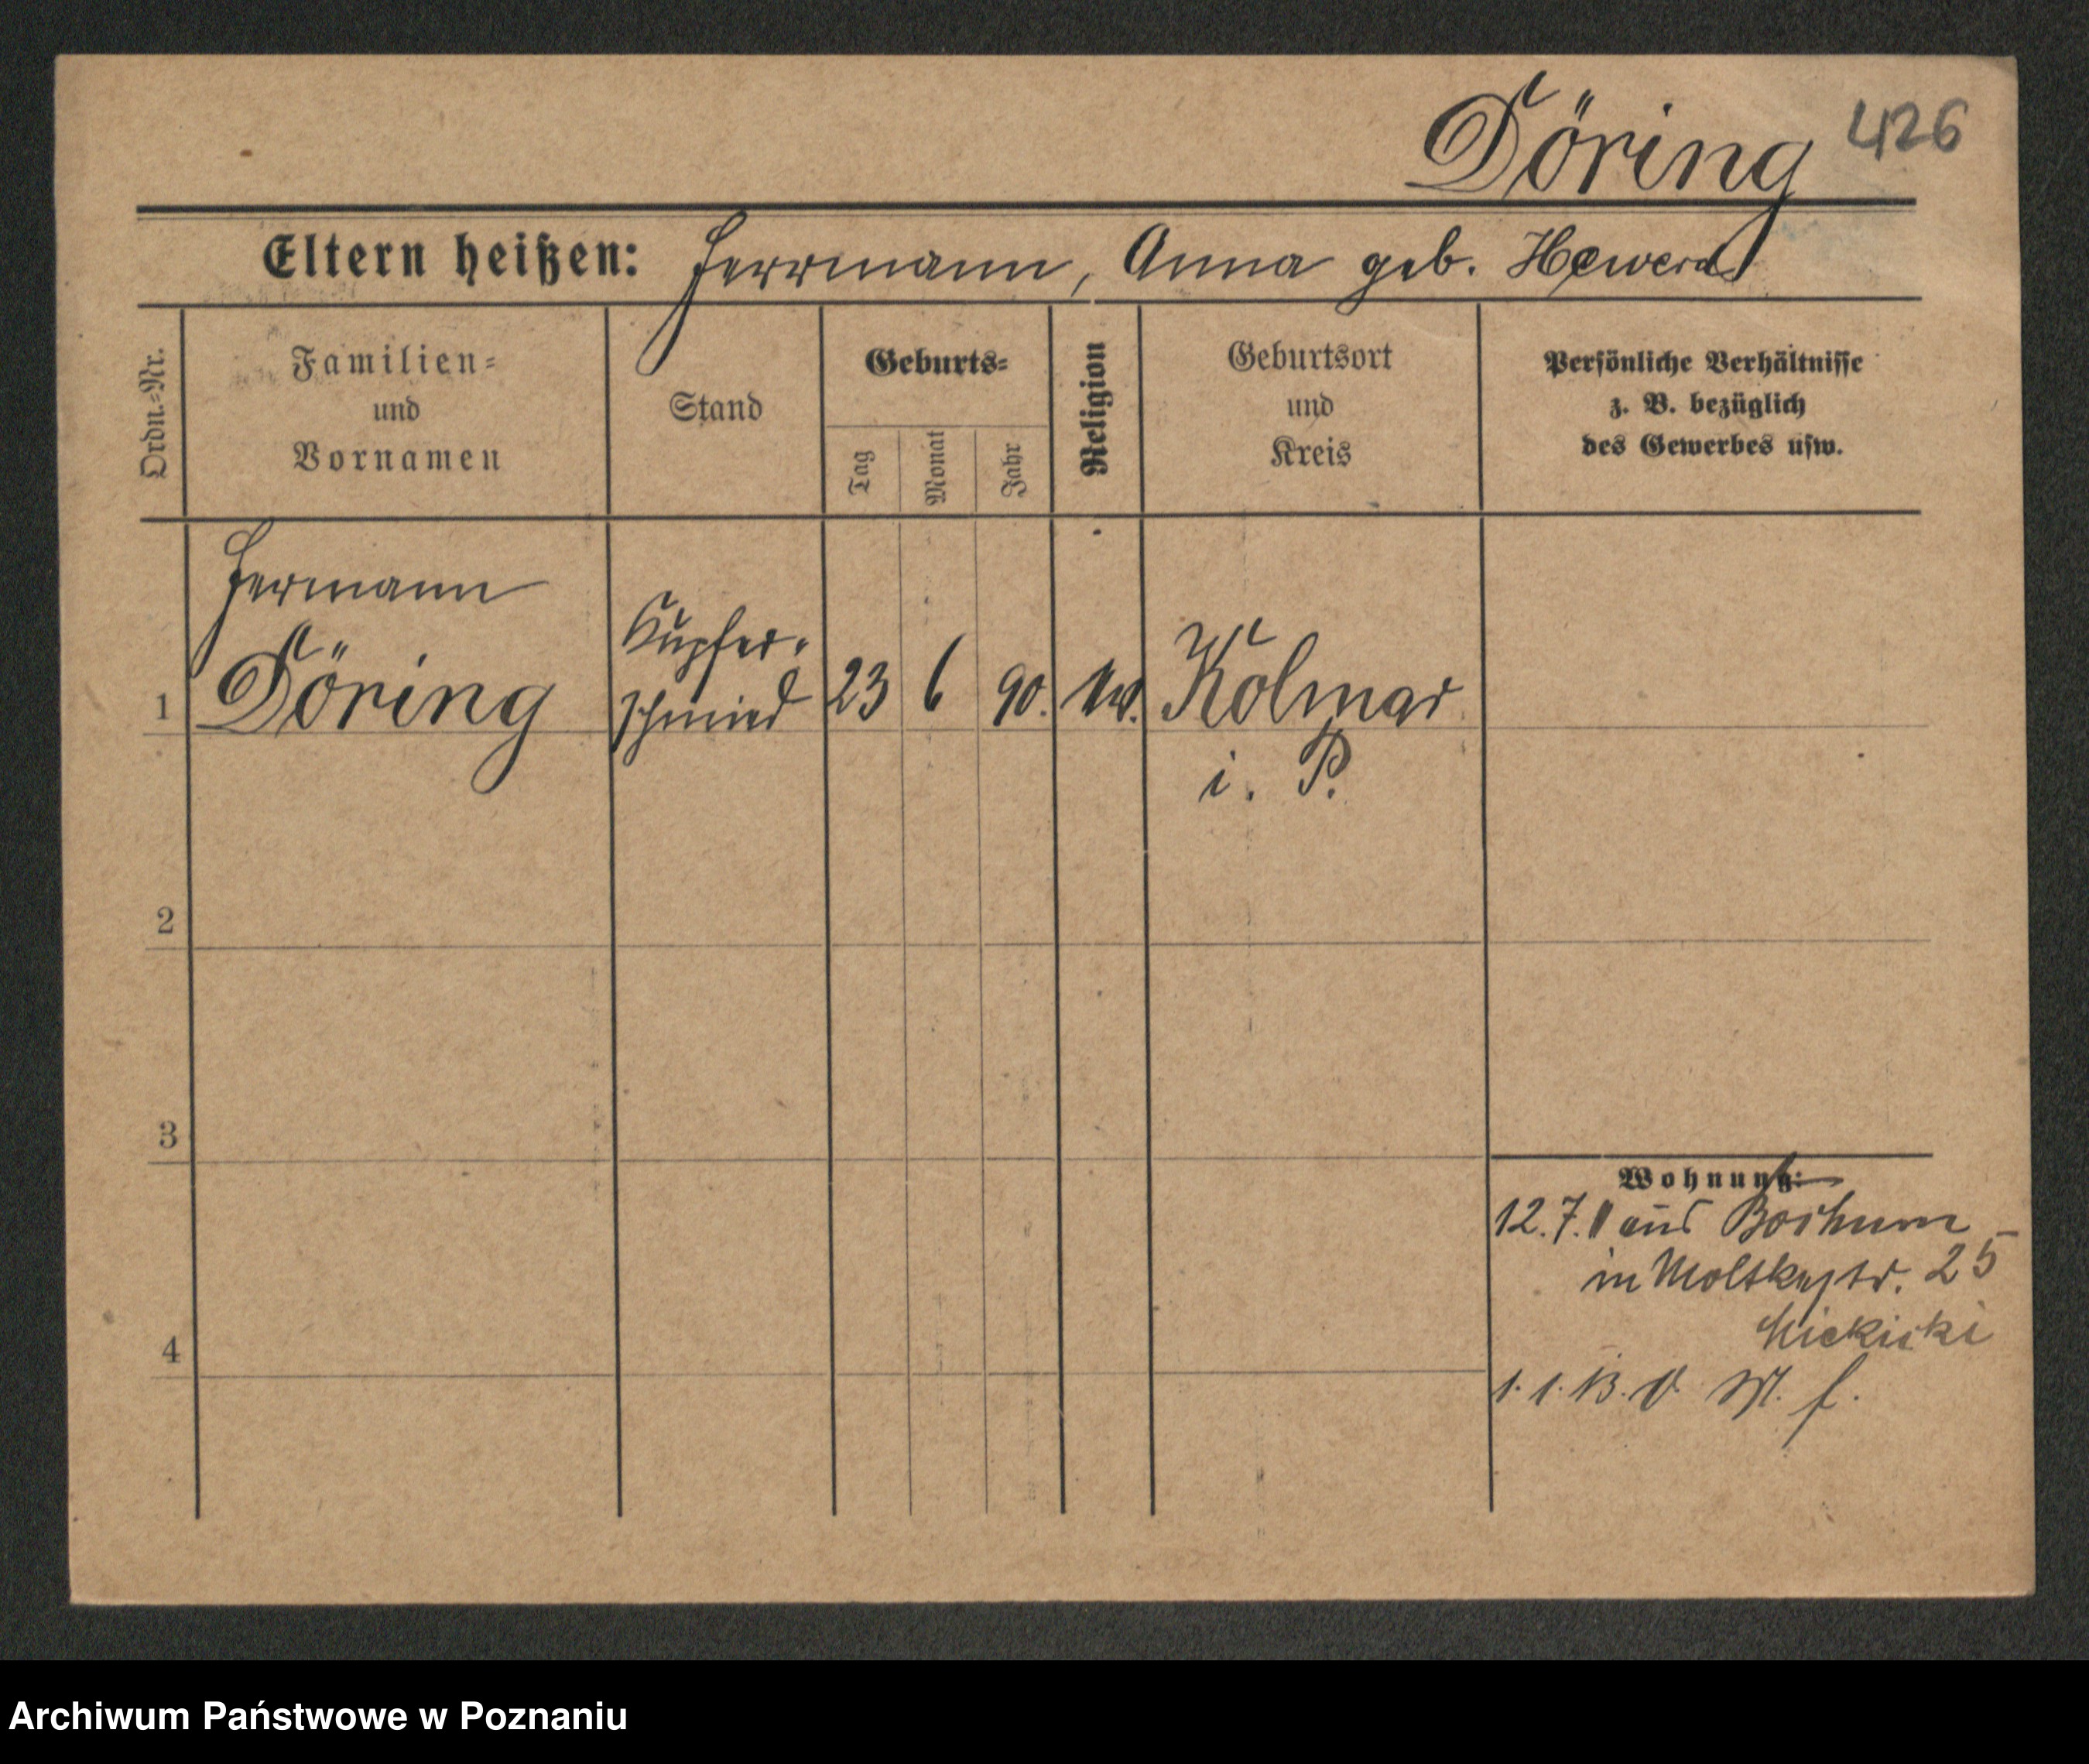 Döring 426
Eltern heißen: Herrmann, Anna geb.
Ordn.=Nr.
Familien=
und
Vornamen
Stand
Geburts=
Tag
Monat
Jahr
Religion
Geburtsort
und
Kreis
Persönliche Verhältnisse
z. B. bezüglich
des Gewerbes usw.
Hermann
Kupfer-
1 Döring schmied 23 6 90. Kolmar
i. P.
2
3
4
Wohnung:
12.7. aus Bochum
in Moltkestr. 25
1.1.13.
Archiwum Państwowe w Poznaniu